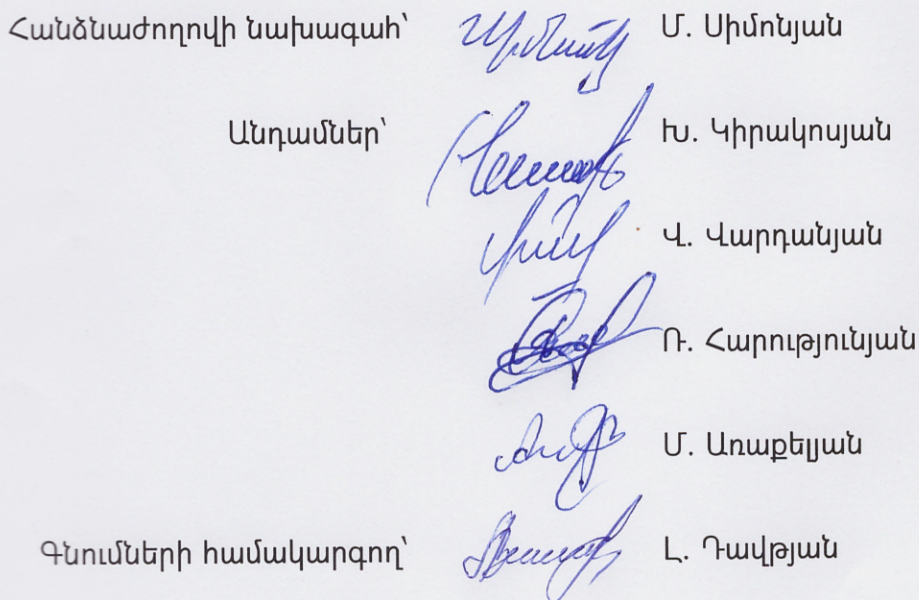 Հանձնաժողովի նախագահ՝ Մ. Սիմոնյան
Անդամներ՝ Խ. Կիրակոսյան
Վ. Վարդանյան
Ռ. Հարությունյան
Մ. Առաքելյան
Գնումների համակարգող՝ Լ. Դավթյան